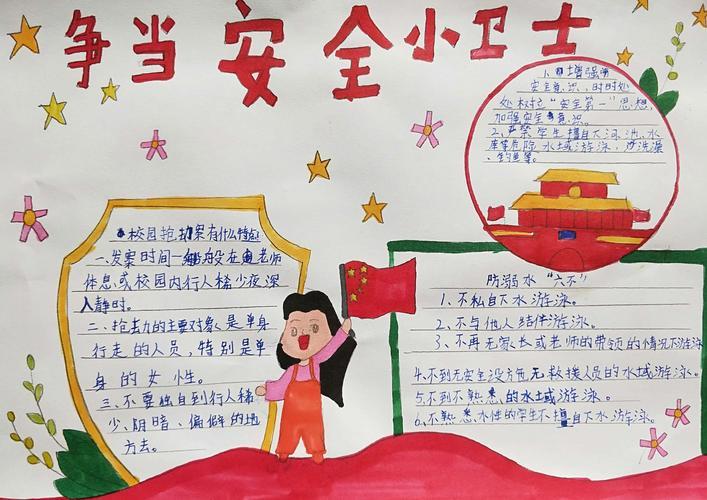 争当安全小卫士
校园抢劫案有什么特点
一、发案时间一般在老师
休息或校园内行人稀少夜深
人静时。
二、抢劫的主要对象是单身
行走的人员,特别是单
身的女性。
三、不要独自到行人稀
少、阴暗、偏僻的地
方去。
1.增强
安全意识,时时处
处树立“安全第一”思想,
加强安全意识。
2、严禁学生擅自下河、池、水
库等危险水域游泳,洗澡
、钓鱼等。
防溺水“六不”
1、不私自下水游泳。
2、不与他人结伴游泳。
3、不再无家长或老师的带领的情况下游泳
4.不到无安全设施无救援人员的水域游泳。
5、不到不熟悉的水域游泳。
6、不熟悉水性的学生不擅自下水游泳。